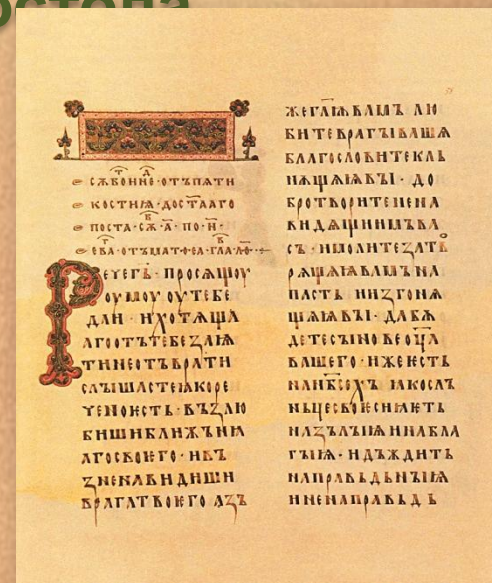 сѫбоние · отъ пѧти
костиѩ · до стааго
поста · сѫ · а҃ · по · н҃ ·
ева · отъ мат · ѳеа · гла · ло ·
Рече гь · просѧщоу
оумоу оу тебе
даи · и хотѧща
аго отъ тебе заѩ
ти не отъврати
слышасте ꙗко ре
чено ѥсть · възлю
биши ближьнꙗ
аго своѥго · и въ
зненавидиши
врага твоѥго азъ
же глѭ вамъ лю
бите врагы вашѧ
благословите кль
нѫщѧѩ вы · до
бро творите нена
видѧщиимъ ва
съ · и молите за тв
орѧщѧѩ вамъ на
пасть и изгонѧ
щѧѩ вы · да бѫ
дете сынове оц҃а
вашего · иже ѥсть
на нбсехъ ꙗко слъ
ньце своѥ сиꙗѥть
на зълыѩ и на бла
гыѩ · и дъждить
на правьдьныѩ
и на неправьдь